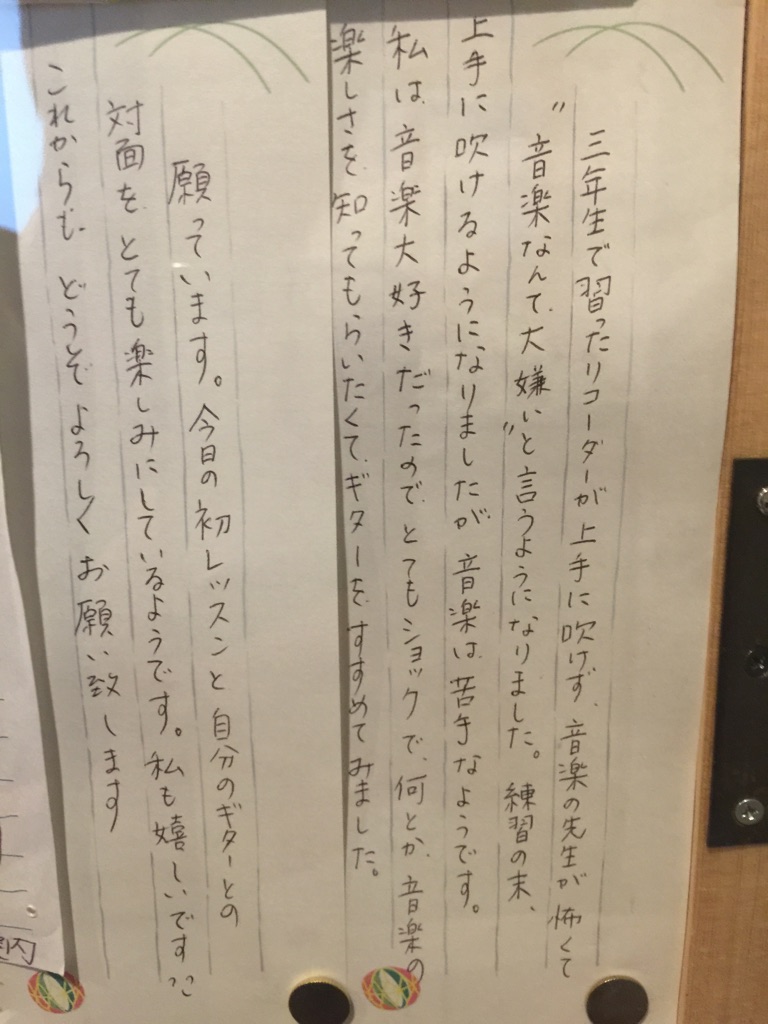 三年生で習ったリコーダーが上手に吹けず、音楽の先生が怖くて
〝音楽なんて大嫌い〟と言うようになりました。練習の末、
上手に吹けるようになりましたが音楽は苦手なようです。
私は音楽大好きだったのでとてもショックで、何とか音楽の
楽しさを知ってもらいたくてギターをすすめてみました。
願っています。今日の初レッスンと自分のギターとの
対面をとても楽しみにしているようです。私も嬉しいです
これからもどうぞよろしくお願い致します
内